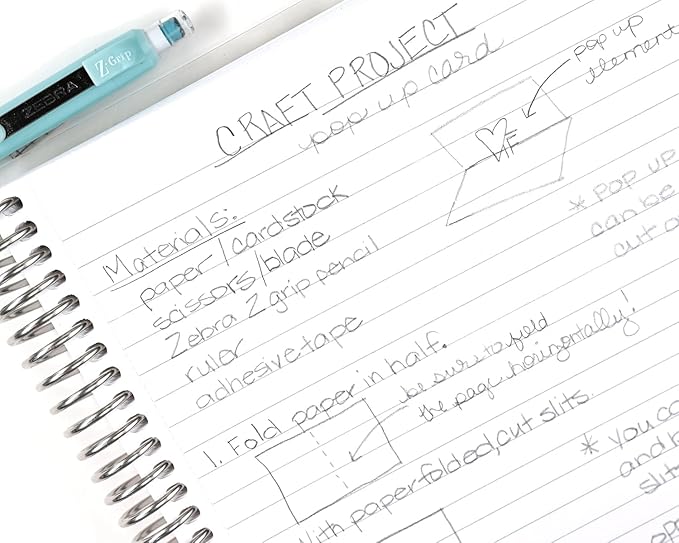 Z-Grip
ZEBRA
CRAFT PROJECT
pop up card
pop up
element
Materials:
paper/cardstock
scissors/blade
Zebra Z grip pencil
ruler
adhesive tape
* POP UP
can be
cut o
1. Fold paper in half.
be sure to fold
the page horizontally!
With paper folded, cut slits.
* you co
and
slit